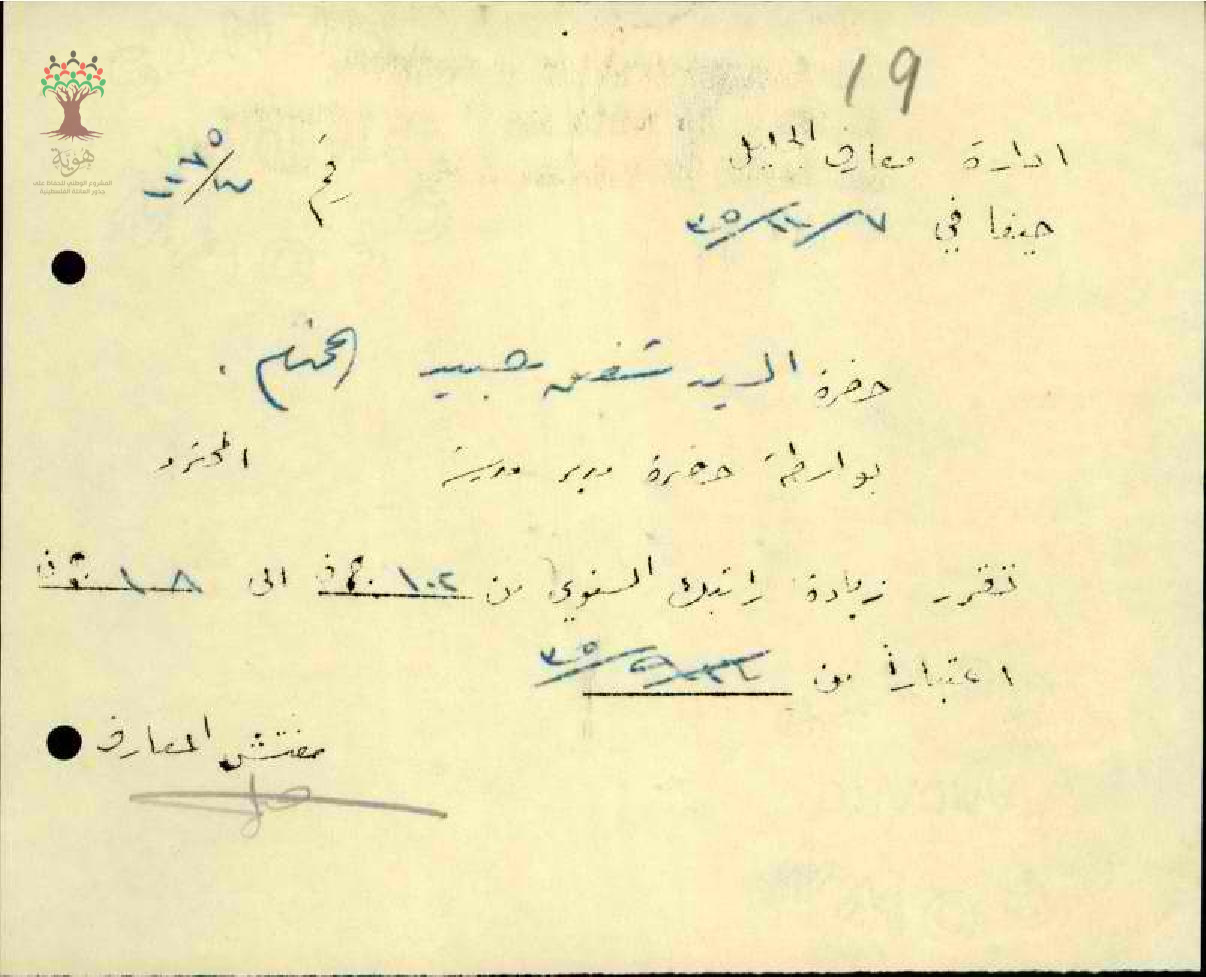 19
ادارة معارف الجليل
رقم
حيفا في ٧/١١/٣٥
هوية
المشروع الوطني للحفاظ على
جذور العائلة الفلسطينية
حضرة السيد شفيق حبيب المحترم .
بواسطة حضرة مدير مدرسة المحترم
تقرر زيادة راتبك السنوي من ١٠٢ الى ١٠٨
اعتباراً من
مفتش المعارف